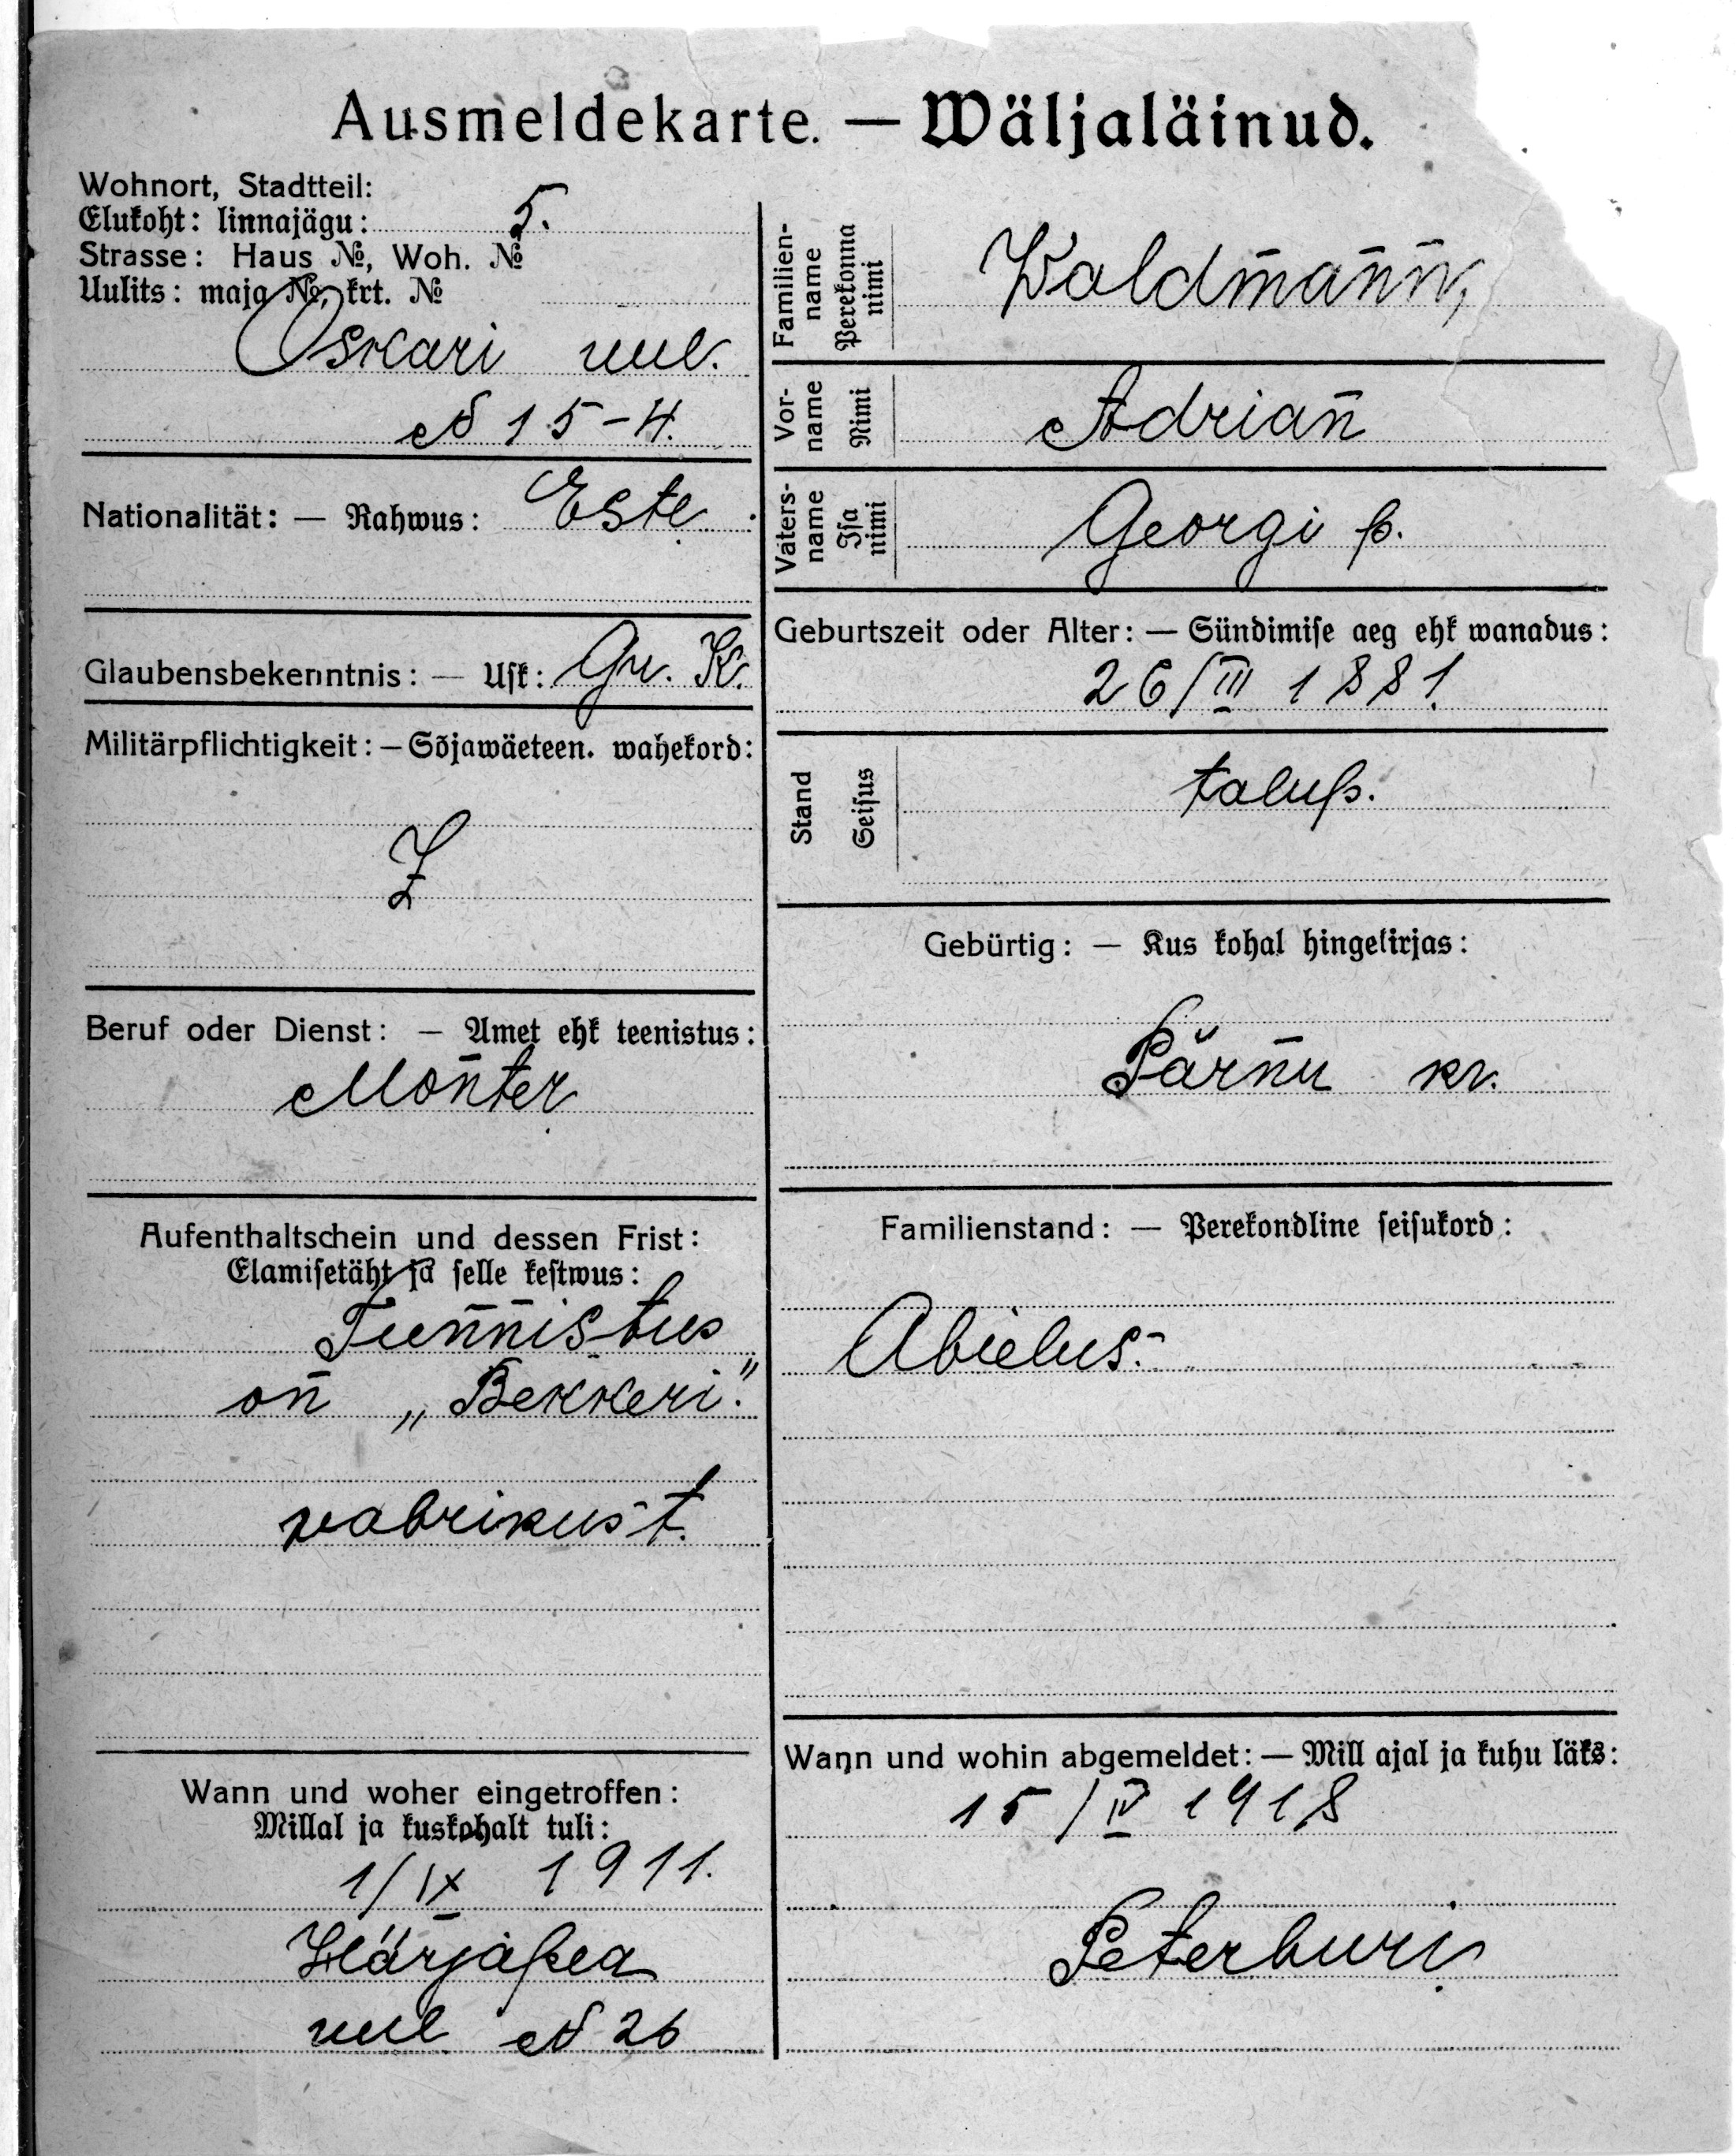 Ausmeldekarte. — Wäljaläinud.
Wohnort, Stadtteil:
Elukoht: linnajägu: 5.
Strasse: Haus №, Woh. №
Uulits: maja №, krt. №
Oskari uul.
№ 15-4.
Nationalität: — Rahwus: Este
Glaubensbekenntnis: — Usk: Gr. K.
Militärpflichtigkeit: — Sõjawäeteen. wahekord:
Beruf oder Dienst: — Amet ehk teenistus:
Monter
Aufenthaltschein und dessen Frist:
Elamisetäht ja selle kestwus:
Tunnistus
on „Bekkeri"
vabrikust.
Wann und woher eingetroffen:
Millal ja kuskohalt tuli:
1/IX 1911.
Härjapea
uul № 26
Familien-
name
Perekonna
nimi
Waldmann,
Vor-
name
Nimi
Adrian
Vaters-
name
Isa
nimi
Georgi p.
Geburtszeit oder Alter: — Sündimise aeg ehk wanadus:
26/III 1881.
Stand
Seisus
talup.
Gebürtig: — Kus kohal hingekirjas:
Pärnu kr.
Familienstand: — Perekondline seisukord:
Abielus.
Wann und wohin abgemeldet: — Mill ajal ja kuhu läks:
15/IV 1918
Peterburi